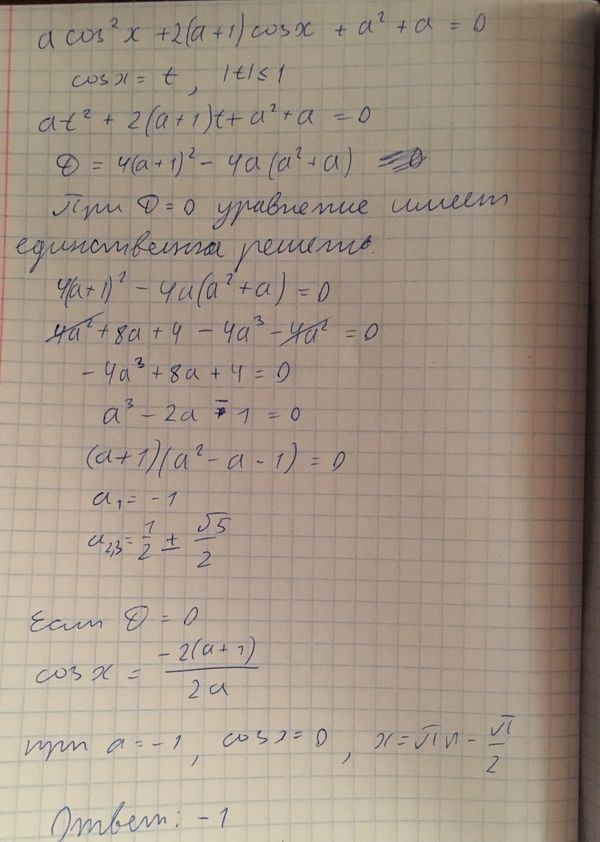 a cos²x + 2(a+1)cosx + a² + a = 0
cosx = t, |t| ≤ 1
at² + 2(a+1)t + a² + a = 0
D = 4(a+1)² - 4a(a²+a)
При D=0 уравнение имеет
решение.
4(a+1)² - 4a(a²+a) = 0
4a² + 8a + 4 - 4a³ - 4a² = 0
-4a³ + 8a + 4 = 0
a³ - 2a - 1 = 0
(a+1)(a² - a - 1) = 0
a₁ = -1
a₂,₃ = 1/2 ± √5/2
Если D = 0
cosx = -2(a+1)/2a
при a = -1, cosx = 0, x = πn - π/2
Ответ: -1